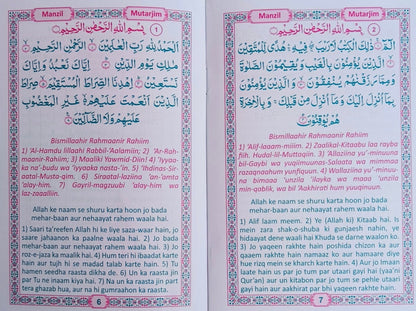 Manzil Mutarjim
① بِسْمِ اللّٰهِ الرَّحْمٰنِ الرَّحِيْمِ
اَلْحَمْدُ لِلّٰهِ رَبِّ الْعٰلَمِيْنَ ۙ الرَّحْمٰنِ الرَّحِيْمِ ۙ
مٰلِكِ يَوْمِ الدِّيْنِ ؕ اِيَّاكَ نَعْبُدُ وَاِيَّاكَ
نَسْتَعِيْنُ ؕ اِهْدِنَا الصِّرَاطَ الْمُسْتَقِيْمَ ۙ صِرَاطَ
الَّذِيْنَ اَنْعَمْتَ عَلَيْهِمْ غَيْرِ الْمَغْضُوْبِ
عَلَيْهِمْ وَلَا الضَّآلِّيْنَ
Bismillaahir Rahmaanir Rahiim
1) 'Al-Hamdu lillaahi Rabbil-'Aalamiin; 2) 'Ar-Rah-
maanir-Rahiim; 3) Maaliki Yawmid-Diin! 4) 'Iyyaa-
ka na'-budu wa 'iyyaaka nasta-'in. 5) 'Ihdinas-Sir-
aatal-Musta-qim. 6) Siraatal-laziina 'an-'amta
'alay-him. 7) Gayril-magzuubi 'alay-him wa
laz-zaaalliin.
Allah ke naam se shuru karta hoon jo bada
mehar-baan aur nehaayat rahem waala hai.
1) Saari ta'reefen Allah hi ke liye saza-waar hain, jo
saare jahaanon ka paalne waala hai. 2) Jo bada
mehar-baan aur nehaayat rahem waala hai. 3) Jo
roz-e-jaza ka maalik hai. 4) Hum teri hi ibaadat karte
hain aur tujh hi se madad talab karte hain. 5) Tu
hamen seedha raasta dikha de. 6) Un ka raasta jin
par Tu ne inaam kiya hai. 7) Na un ka raasta jin part
tera ghazab hua, aur na hi gumraahon ka raasta.
6
Manzil Mutarjim
② بِسْمِ اللّٰهِ الرَّحْمٰنِ الرَّحِيْمِ
الٓمّٓ ۚ ذٰلِكَ الْكِتٰبُ لَا رَيْبَ ۛ فِيْهِ ۛ هُدًى لِّلْمُتَّقِيْنَ ۙ
الَّذِيْنَ يُؤْمِنُوْنَ بِالْغَيْبِ وَيُقِيْمُوْنَ الصَّلٰوةَ
وَمِمَّا رَزَقْنٰهُمْ يُنْفِقُوْنَ ۙ وَالَّذِيْنَ يُؤْمِنُوْنَ
بِمَآ اُنْزِلَ اِلَيْكَ وَمَآ اُنْزِلَ مِنْ قَبْلِكَ ۚ وَبِالْاٰخِرَةِ
هُمْ يُوْقِنُوْنَ ؕ
Bismillaahir Rahmaanir Rahiim
1) 'Alif-laaam-miiim. 2) Zaalikal-Kitaabu laa rayba
fiih. Hudal-lil-Muttaqiin. 3) 'Allaziina yu'-minuuna
bil-Gaybi wa yuqiimuunas-Salaata wa mimmaa
razaqnaahum yunfiquun. 4) Wallaziina yu'-minuu-
na bimaaa 'unzila 'ilayka wa maaa 'unzila
min-qablik, wa bil 'Aakhirati hum yuuqinuun.
Allah ke naam se shuru karta hoon jo bada
mehar-baan aur nehaayat rahem waala hai.
1) Alif laam meem. 2) Ye (Allah ki) Kitaab hai. Is
mein zara shak-o-shuba ki gunjaesh nahin, ye
hidaayat dene waali hai Khuda se darne waalon ko.
3) Jo yaqeen rakhte hain poshida chizon ka aur
qaaem rakhte hain namaaz ko aur hamaare diye
hue rizq mein se kharch karte hain. 4) Aur jo Imaan
laate hain us par jo tum par utaari gayi hai (yaa'ni
Qur'an) aur un kitabon par jo tum se pehle utaari
gayi hain aur aakhirat par bhi yaqeen rakhte hain.
7